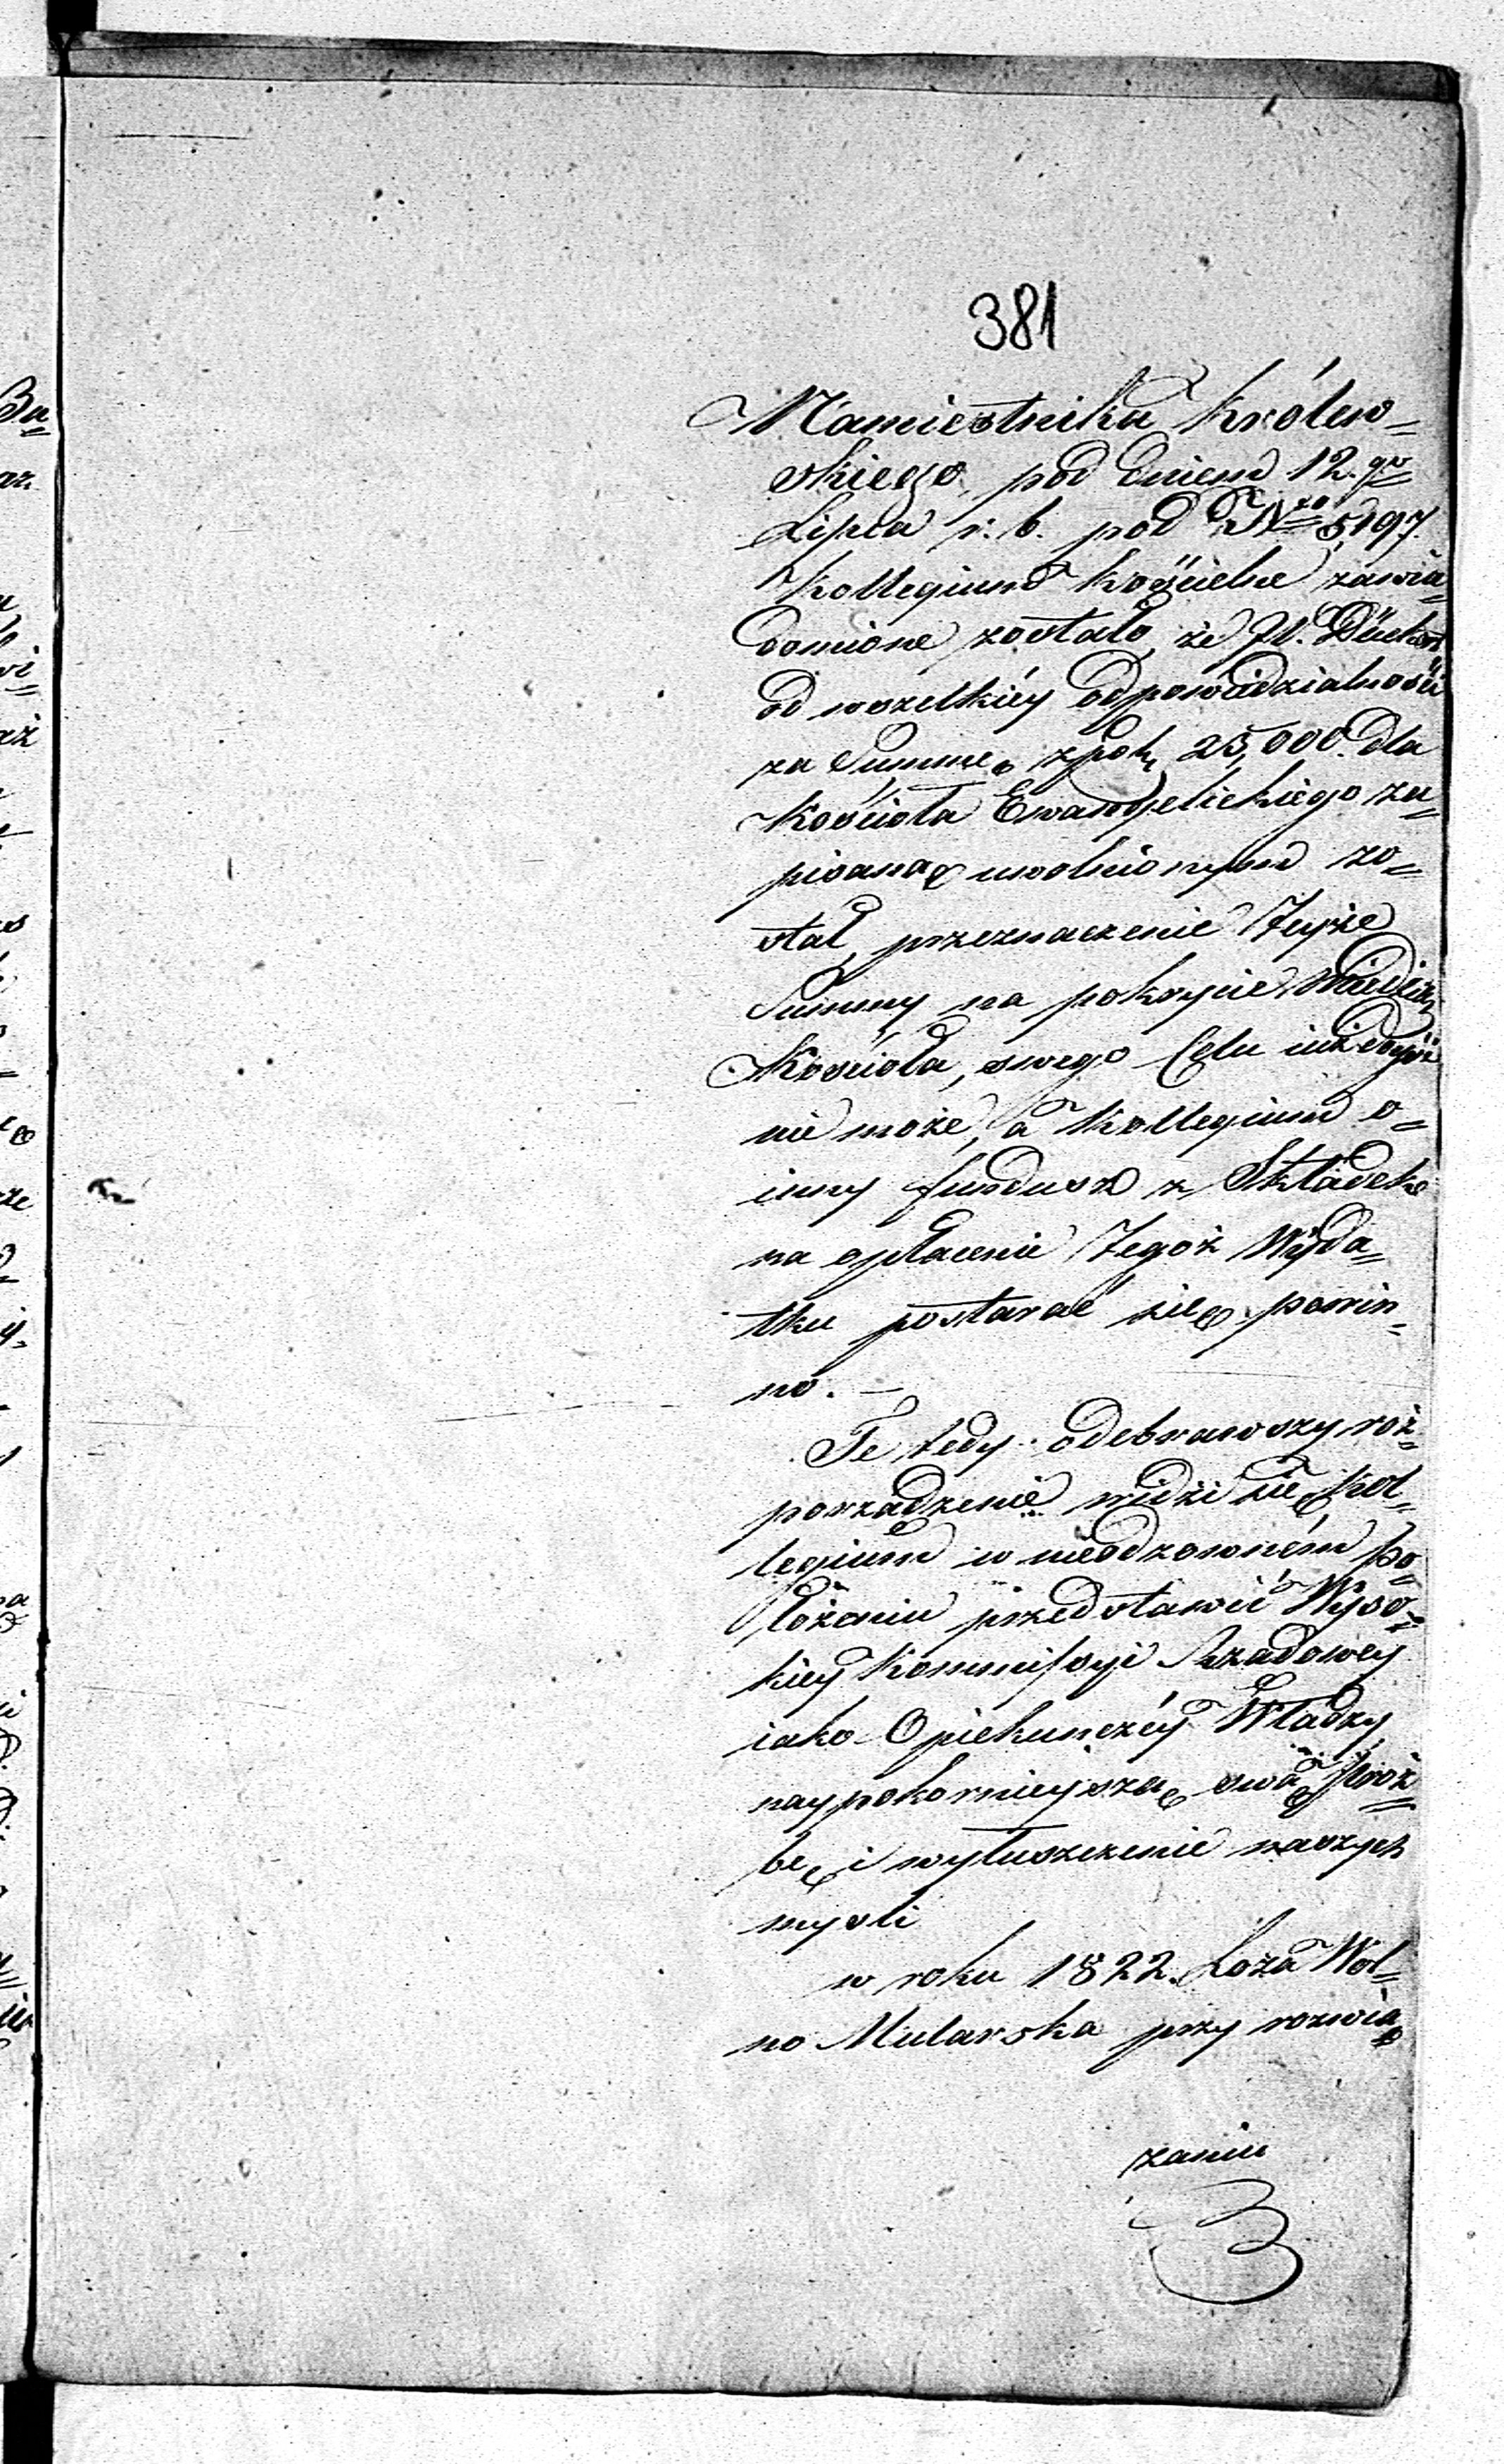 381
Namiestnika Królew=
skiego, pod dniem 12.go
Lipca r. b. pod Nro 5,197.
Kollegium Kościelne zawia=
domione zostało, że JW.
od wszelkiéy odpowiedzialności
za Summę zpol. 25,000. dla
Kościoła Ewangelickiego za=
pisaną uwolnionym zo=
stał, przeznaczenie teyże
Summy na pokrycie
Kościoła, swego Celu iuż
nie może, a Kollegium o=
inny fundusz z Składek
na opłacenie tegoż Wyda=
tku postarać się powin=
no. —
Te tedy odebrawszy roz=
porządzenie widzi się Kol=
legium w nieodzowném po=
łożeniu przedstawić Wyso=
kiey Kommissyi Rządowey
iako Opiekunczéy Władzy
naypokornieyszą swą Proź=
bę i wyłuszczenie naszych
mysli
w roku 1822. Loża Wol=
no Mularska przy rozwią=
zaniu